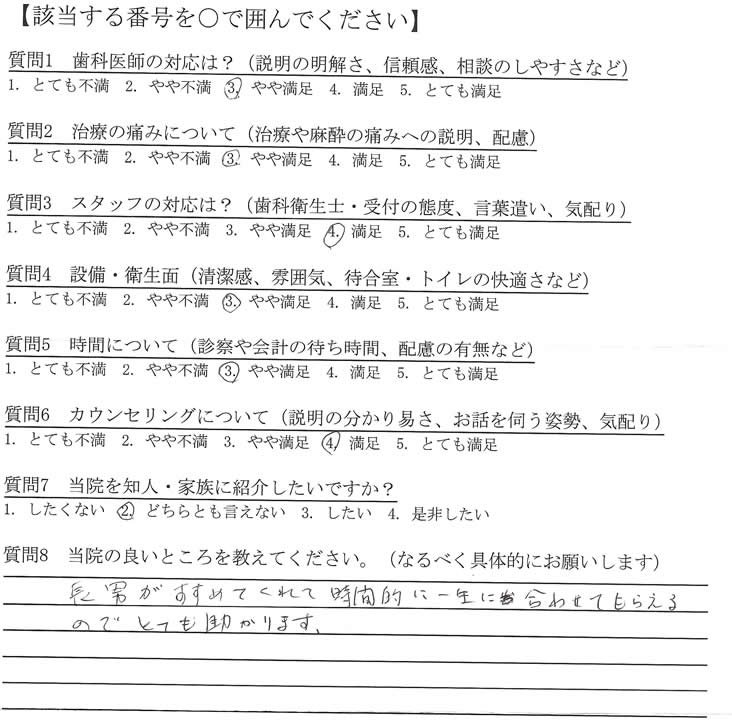 【該当する番号を○で囲んでください】
質問1 歯科医師の対応は？（説明の明解さ、信頼感、相談のしやすさなど）
1. とても不満 2. やや不満 3. やや満足 4. 満足 5. とても満足
質問2 治療の痛みについて（治療や麻酔の痛みへの説明、配慮）
1. とても不満 2. やや不満 3. やや満足 4. 満足 5. とても満足
質問3 スタッフの対応は？（歯科衛生士・受付の態度、言葉遣い、気配り）
1. とても不満 2. やや不満 3. やや満足 4. 満足 5. とても満足
質問4 設備・衛生面（清潔感、雰囲気、待合室・トイレの快適さなど）
1. とても不満 2. やや不満 3. やや満足 4. 満足 5. とても満足
質問5 時間について（診察や会計の待ち時間、配慮の有無など）
1. とても不満 2. やや不満 3. やや満足 4. 満足 5. とても満足
質問6 カウンセリングについて（説明の分かり易さ、お話を伺う姿勢、気配り）
1. とても不満 2. やや不満 3. やや満足 4. 満足 5. とても満足
質問7 当院を知人・家族に紹介したいですか？
1. したくない 2. どちらとも言えない 3. したい 4. 是非したい
質問8 当院の良いところを教えてください。（なるべく具体的にお願いします）
長男がすすめてくれて時間的に一生に合わせてもらえる
のでとても助かります。